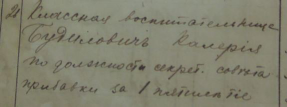 21 Классная воспитательница
Будиловичъ Калерія
по должности секрет. совѣта
прибавки за 1 пятилѣтіе